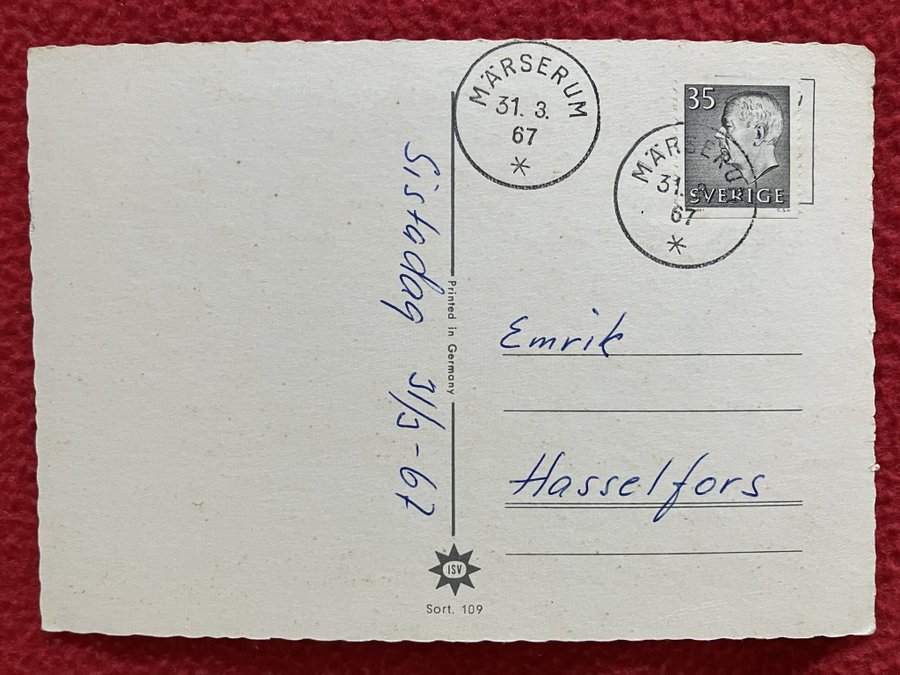 MÄRSERUM
31. 3.
67
*
35
SVERIGE
MÄRSERUM
31. 3.
67
*
Sistadag 31/3-67
Printed in Germany
Emrik
Hasselfors
ISV
Sort. 109